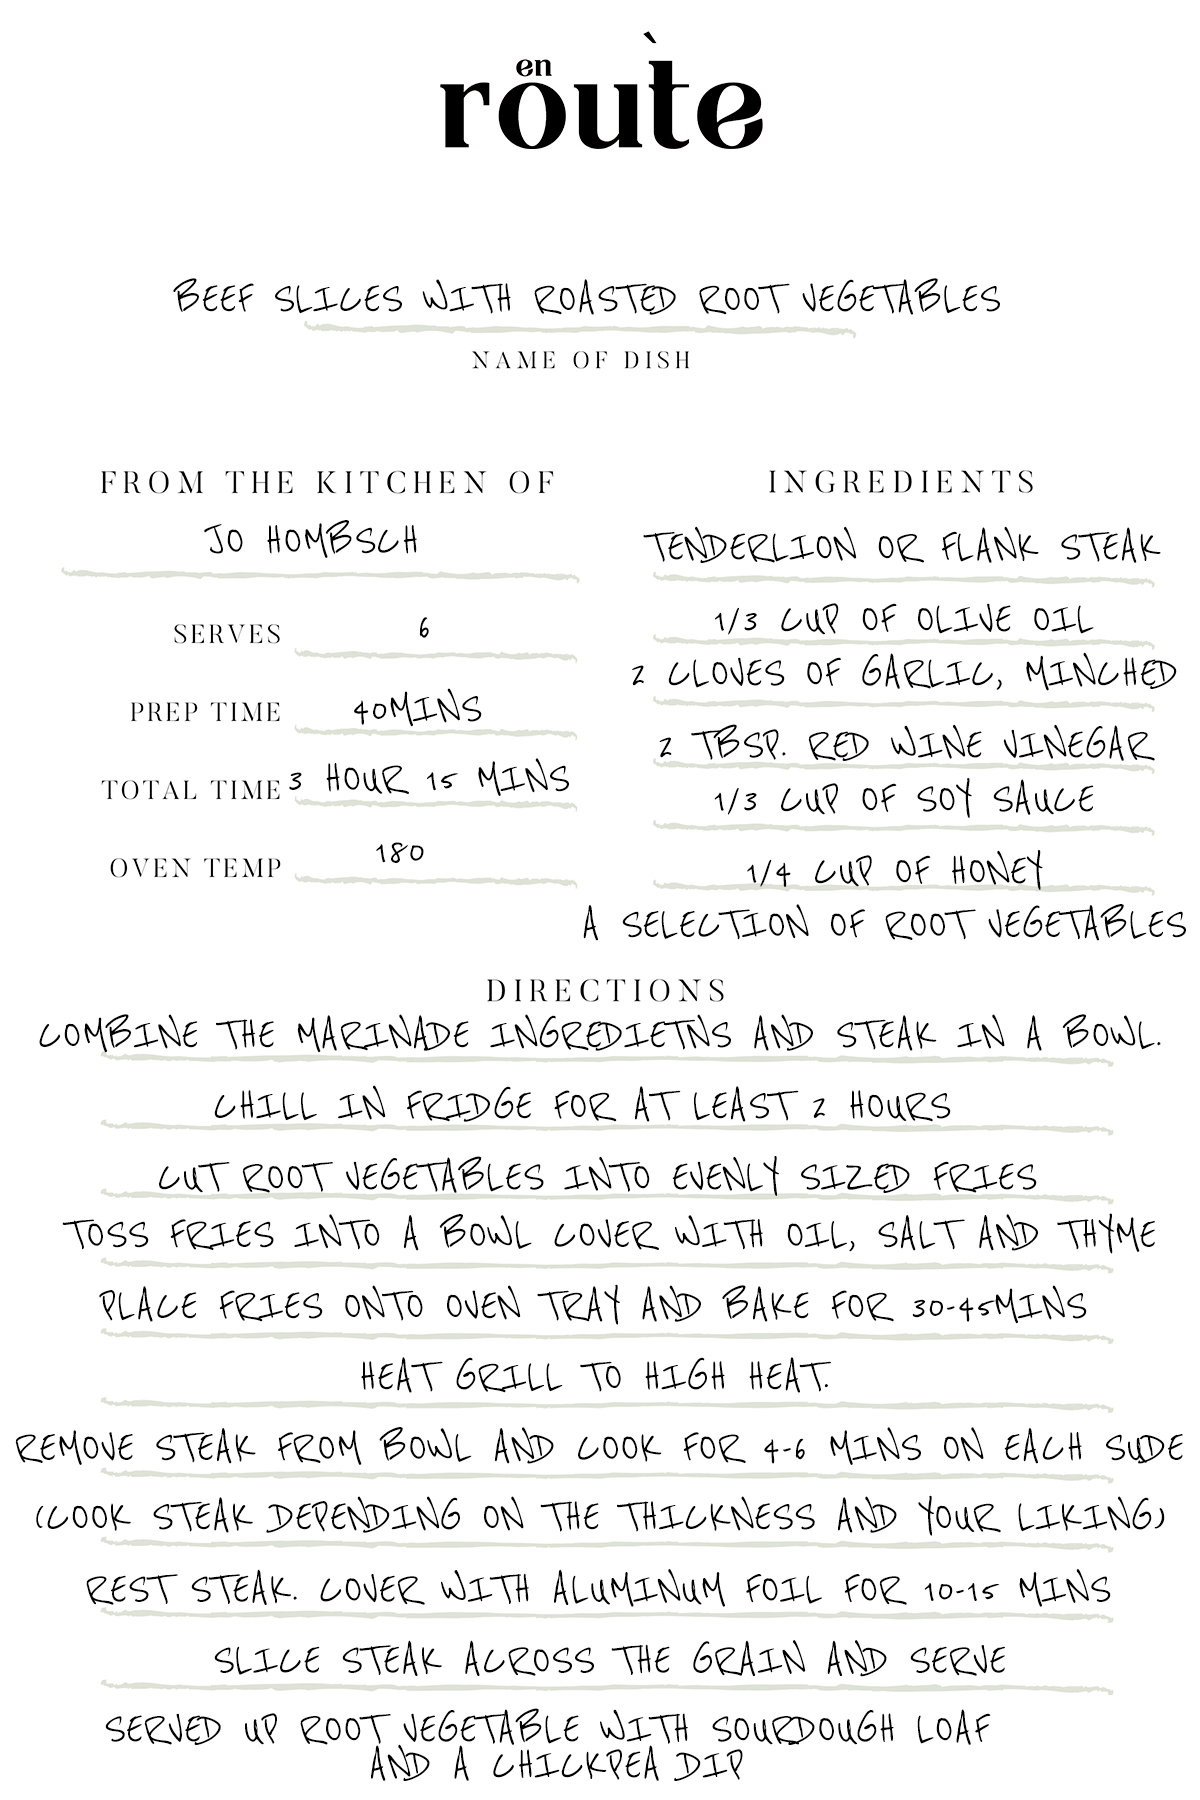 en
routè
BEEF SLICES WITH ROASTED ROOT VEGETABLES
NAME OF DISH
FROM THE KITCHEN OF
JO HOMBSCH
SERVES 6
PREP TIME 40MINS
TOTAL TIME 3 HOUR 15 MINS
OVEN TEMP 180
INGREDIENTS
TENDERLION OR FLANK STEAK
1/3 CUP OF OLIVE OIL
2 CLOVES OF GARLIC, MINCHED
2 TBSP. RED WINE VINEGAR
1/3 CUP OF SOY SAUCE
1/4 CUP OF HONEY
A SELECTION OF ROOT VEGETABLES
DIRECTIONS
COMBINE THE MARINADE INGREDIETNS AND STEAK IN A BOWL.
CHILL IN FRIDGE FOR AT LEAST 2 HOURS
CUT ROOT VEGETABLES INTO EVENLY SIZED FRIES
TOSS FRIES INTO A BOWL COVER WITH OIL, SALT AND THYME
PLACE FRIES ONTO OVEN TRAY AND BAKE FOR 30-45MINS
HEAT GRILL TO HIGH HEAT.
REMOVE STEAK FROM BOWL AND COOK FOR 4-6 MINS ON EACH SUDE
(COOK STEAK DEPENDING ON THE THICKNESS AND YOUR LIKING)
REST STEAK. COVER WITH ALUMINUM FOIL FOR 10-15 MINS
SLICE STEAK ACROSS THE GRAIN AND SERVE
SERVED UP ROOT VEGETABLE WITH SOURDOUGH LOAF
AND A CHICKPEA DIP